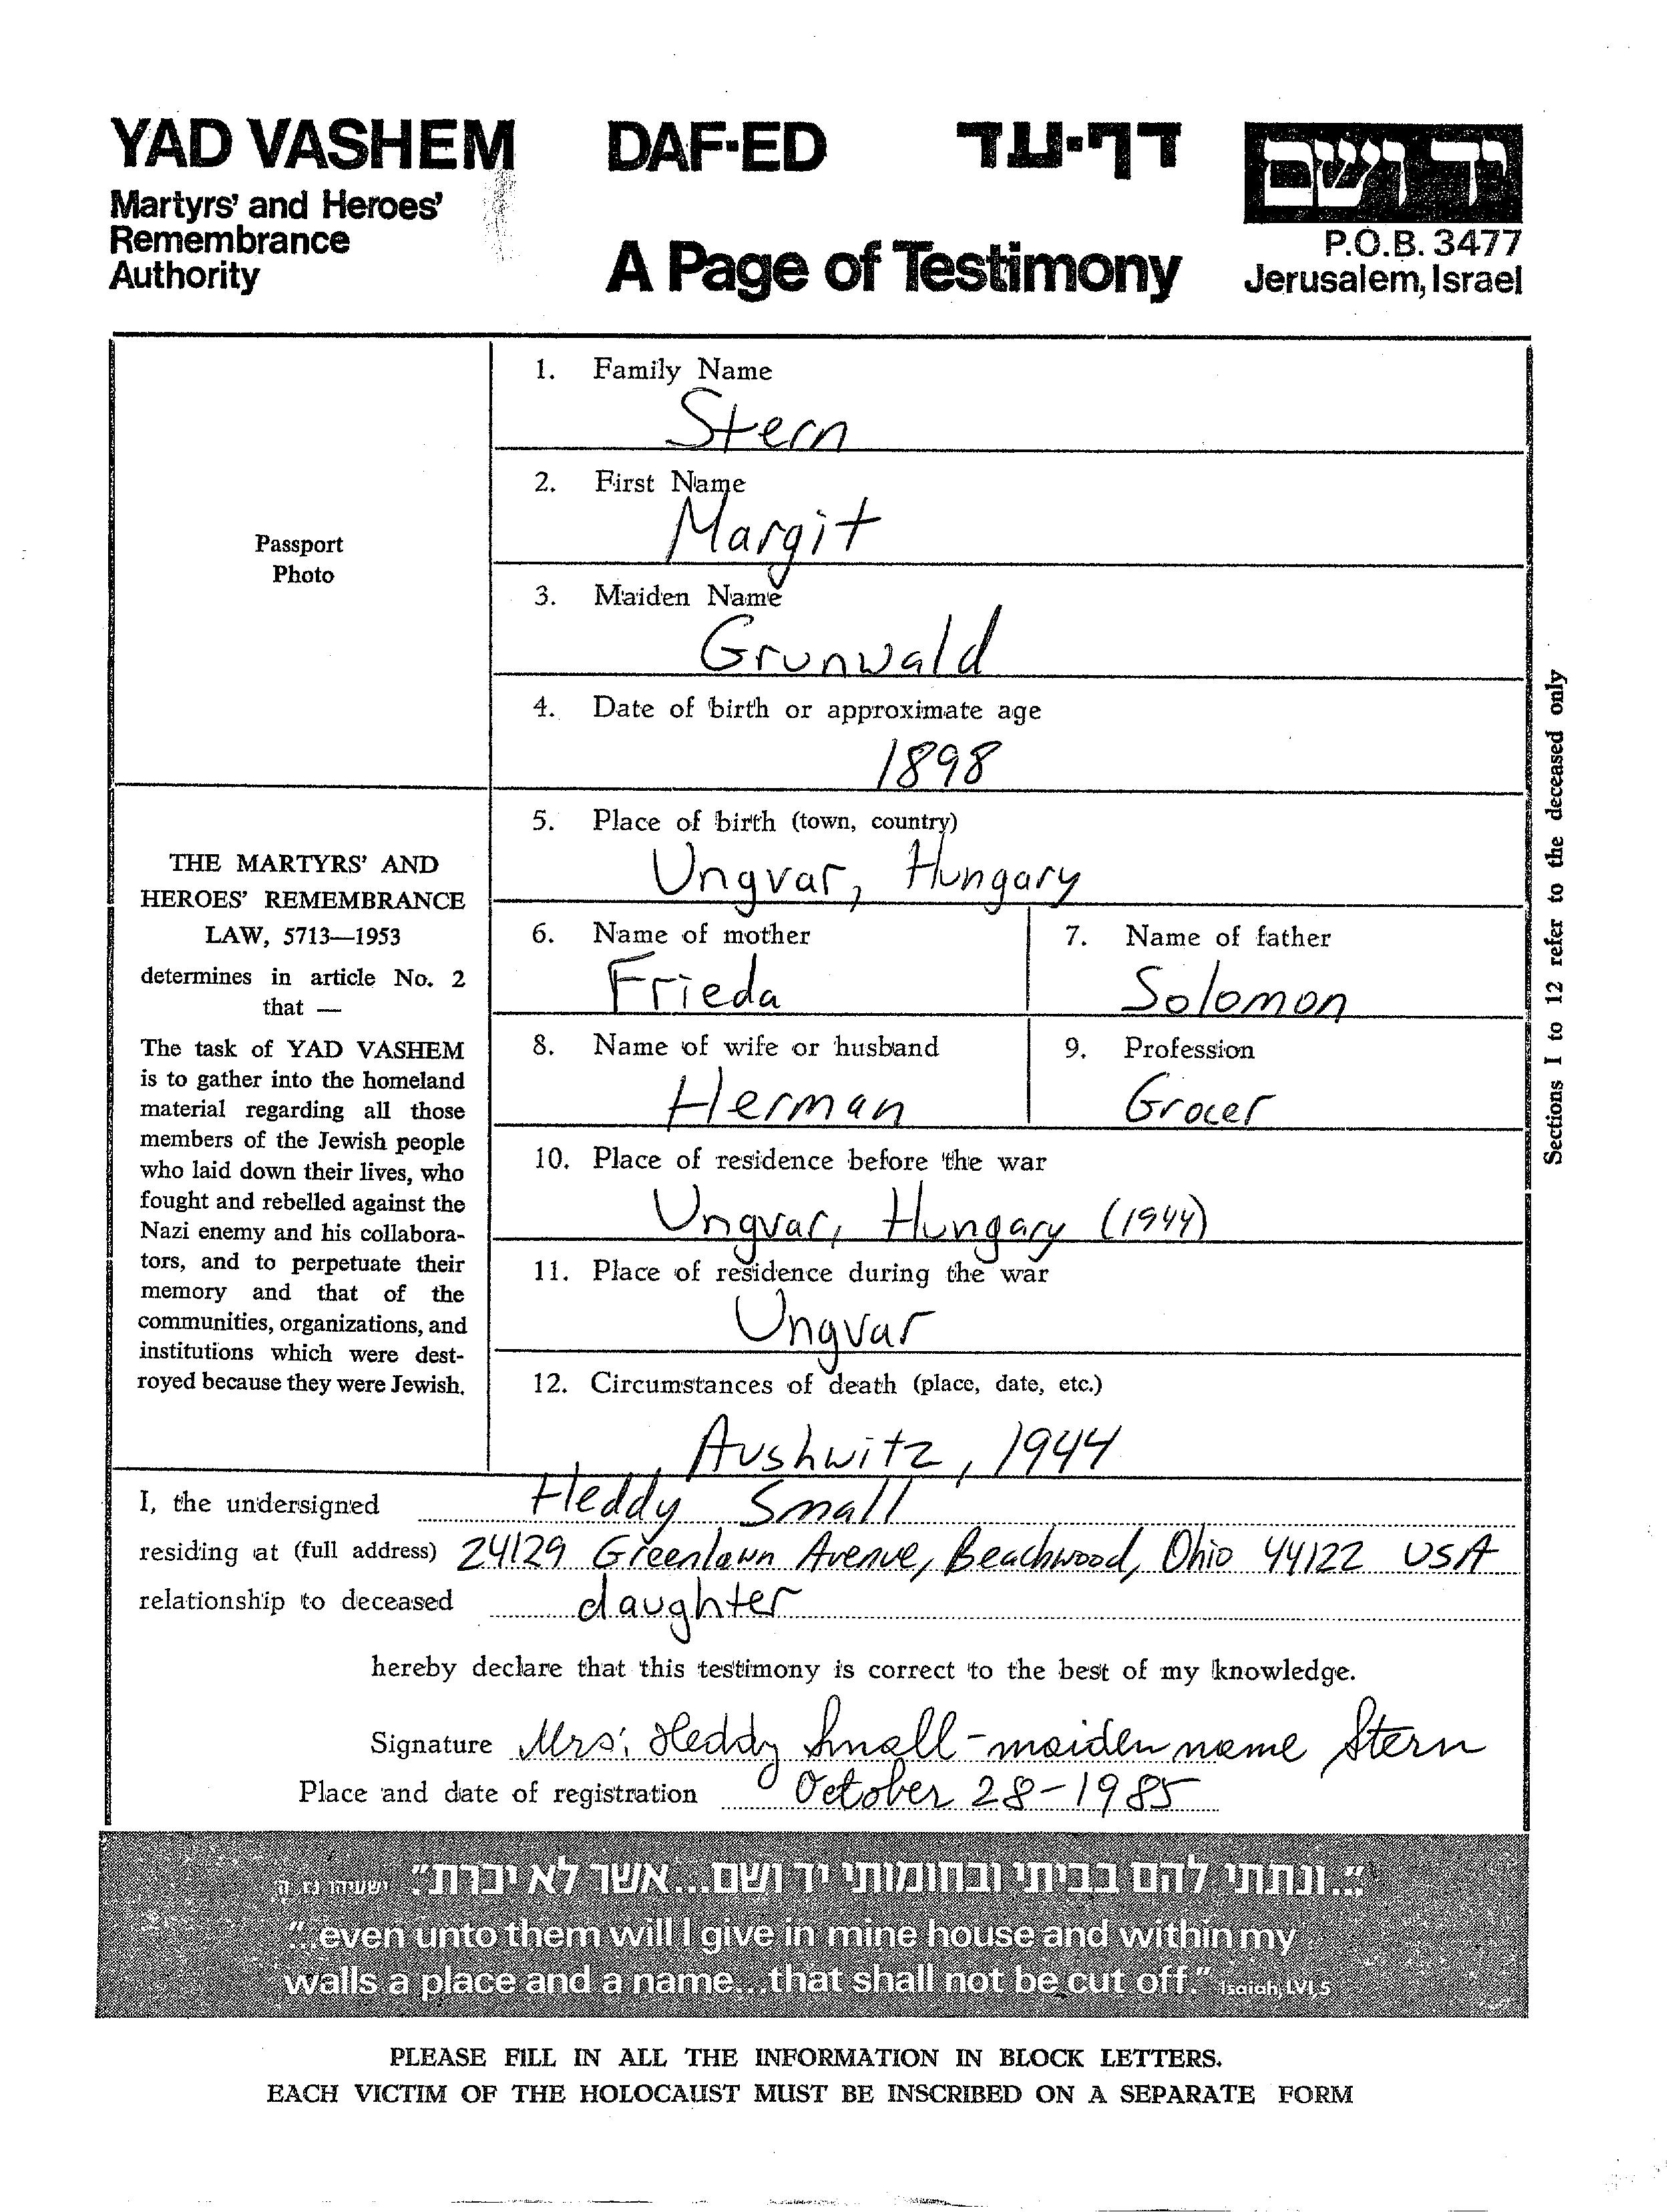 YAD VASHEM
Martyrs' and Heroes'
Remembrance
Authority
DAF-ED
דף-עד
A Page of Testimony
יד ושם
P.O.B. 3477
Jerusalem, Israel
Passport
Photo
THE MARTYRS' AND
HEROES' REMEMBRANCE
LAW, 5713—1953
determines in article No. 2
that —
The task of YAD VASHEM
is to gather into the homeland
material regarding all those
members of the Jewish people
who laid down their lives, who
fought and rebelled against the
Nazi enemy and his collabora-
tors, and to perpetuate their
memory and that of the
communities, organizations, and
institutions which were dest-
royed because they were Jewish.
1. Family Name
Stern
2. First Name
Margit
3. Maiden Name
Grunwald
4. Date of birth or approximate age
1898
5. Place of birth (town, country)
Ungvar, Hungary
6. Name of mother
Frieda
7. Name of father
Solomon
8. Name of wife or husband
Herman
9. Profession
Grocer
10. Place of residence before the war
Ungvar, Hungary (1944)
11. Place of residence during the war
Ungvar
12. Circumstances of death (place, date, etc.)
Aushwitz, 1944
Sections 1 to 12 refer to the deceased only
I, the undersigned Heddy Small
residing at (full address) 24129 Greenlawn Avenue, Beachwood, Ohio 44122 USA
relationship to deceased daughter
hereby declare that this testimony is correct to the best of my knowledge.
Signature Mrs. Heddy Small - maiden name Stern
Place and date of registration October 28-1985
"...ונתתי להם בביתי ובחומותי יד ושם...אשר לא יכרת". ישעיהו נו, ה
"...even unto them will I give in mine house and within my
walls a place and a name...that shall not be cut off." Isaiah, LVI, 5
PLEASE FILL IN ALL THE INFORMATION IN BLOCK LETTERS.
EACH VICTIM OF THE HOLOCAUST MUST BE INSCRIBED ON A SEPARATE FORM